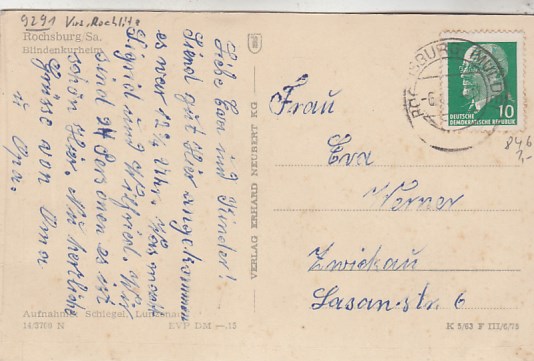 9291
Rochsburg/Sa.
Blindenkurheim
Liebe Eva und Kinder!
Sind gut Hier angekommen
es war 1/2 1 Uhr. Was macht
Sigrid und Wilfried. Wir
sind 24 Personen es ist
schön Hier. Nu herzliche
Grüsse von Oma
u Opa.
Aufnahme: Schlegel, Lunzenau
14/3708 N EVP DM —.15
VERLAG ERHARD NEUBERT KG
DEUTSCHE
DEMOKRATISCHE REPUBLIK
10
846
Frau
Eva
Werner
Zwickau
Lasanstr 6
K 5/63 F III/6/76